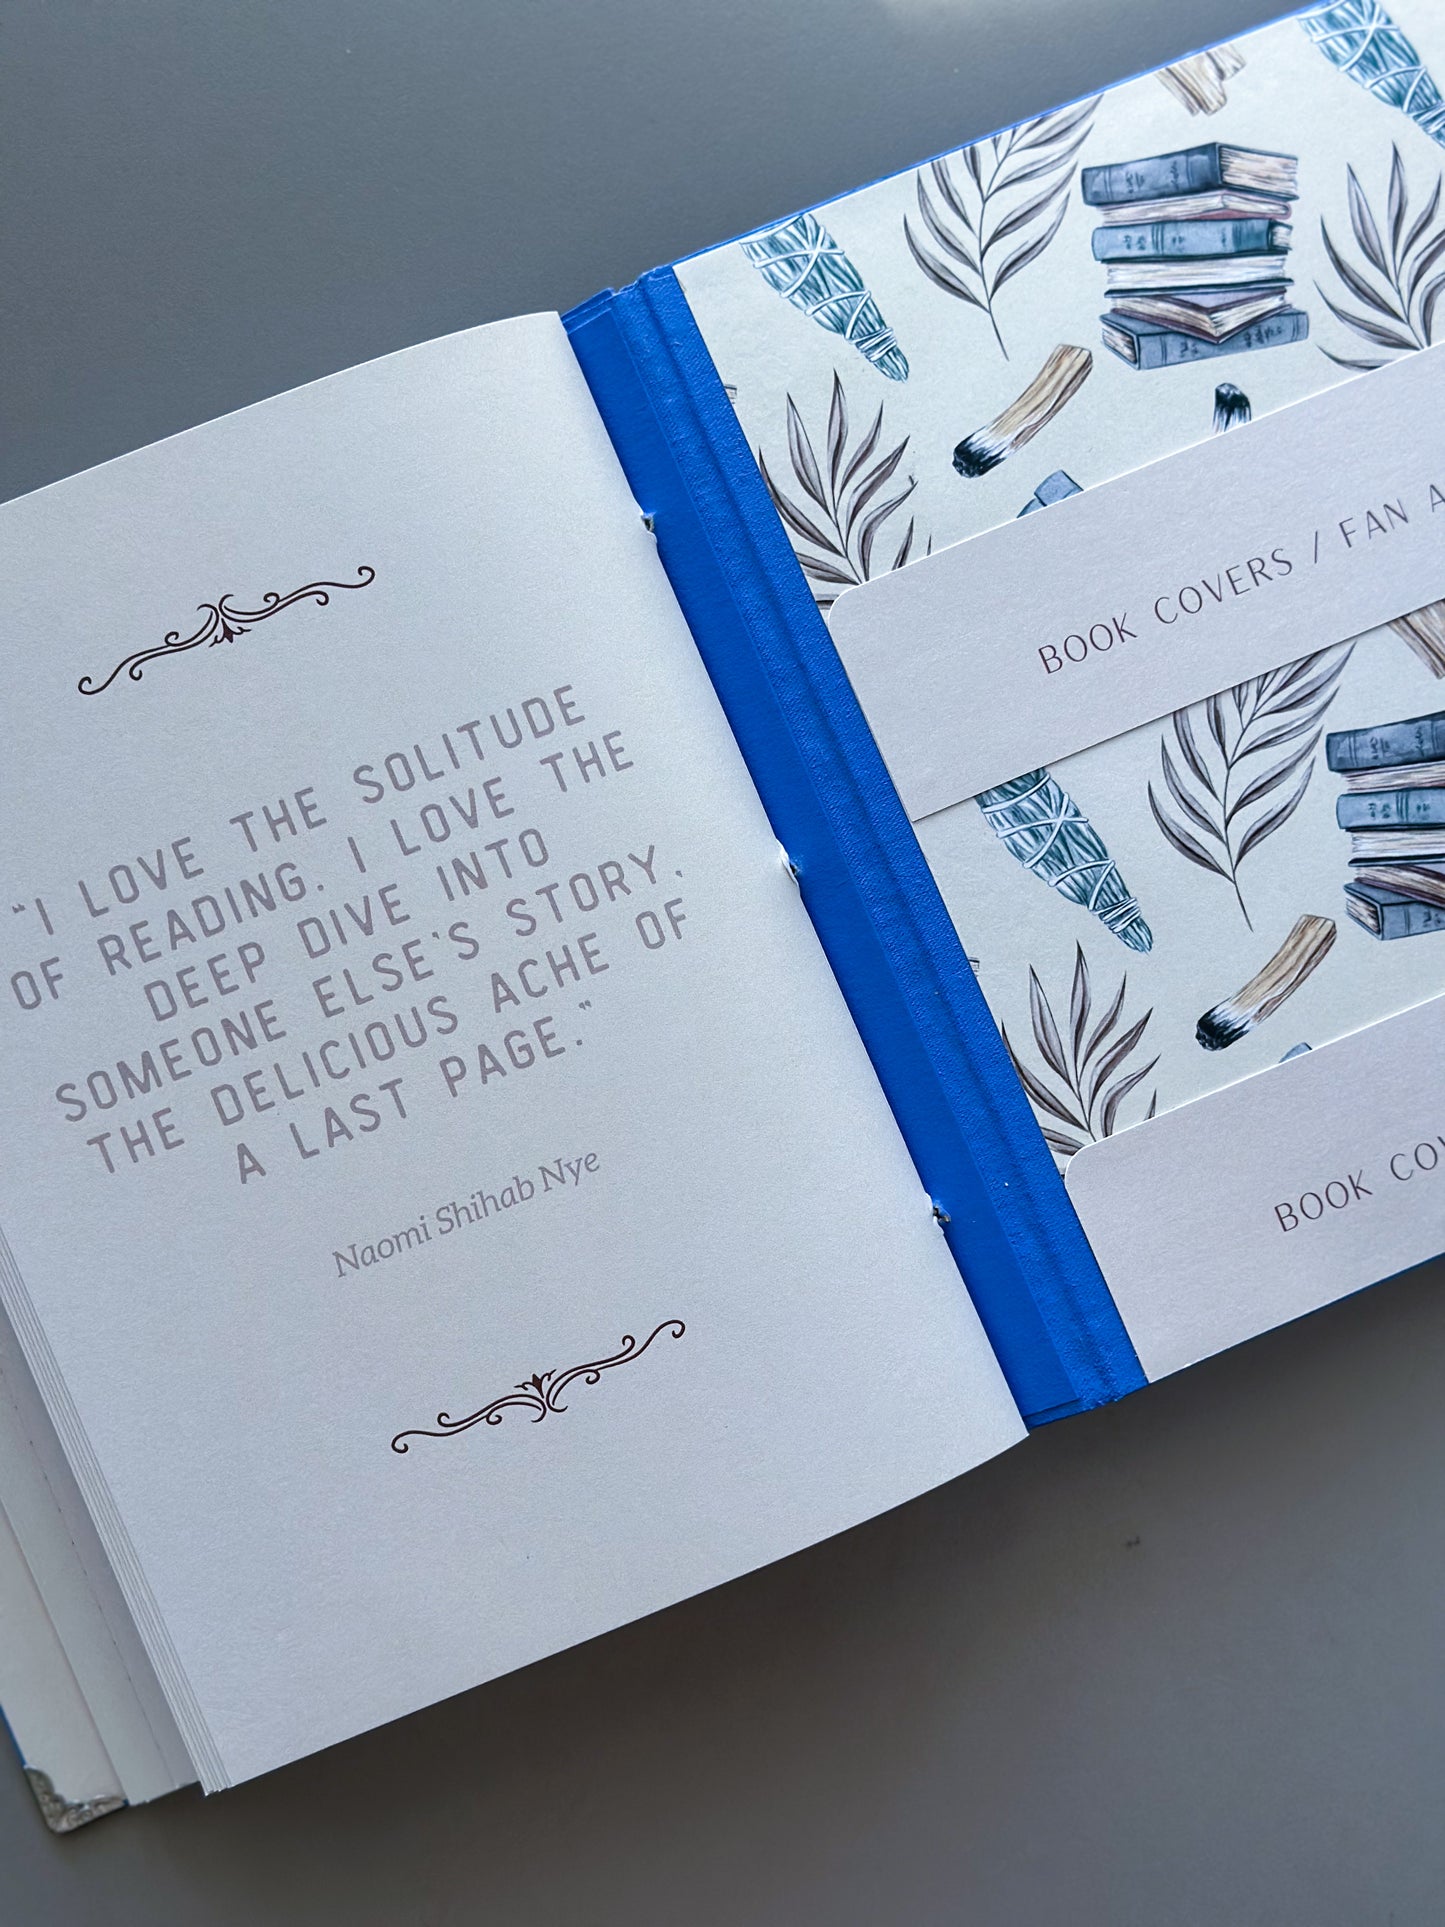 "I LOVE THE SOLITUDE
OF READING. I LOVE THE
DEEP DIVE INTO
SOMEONE ELSE'S STORY,
THE DELICIOUS ACHE OF
A LAST PAGE."
Naomi Shihab Nye
BOOK COVERS / FAN
BOOK